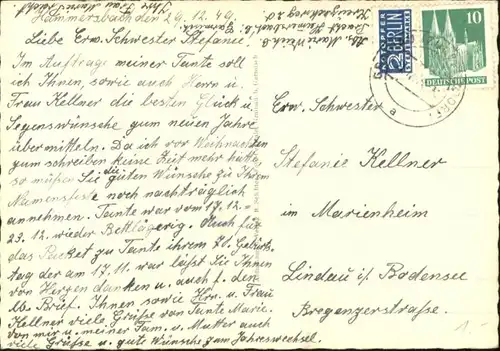 Hammersbach den 29.12.49.
Liebe Erw. Schwester Stefanie!
Im Auftrage meiner Tante soll
ich Ihnen, sowie auch Herrn u.
Frau Kellner die besten Glück u.
Segenswünsche zum neuen Jahre
übermitteln. Da ich vor Weihnachten
zum schreiben keine Zeit mehr hatte,
so müßen Sie die guten Wünsche zu Ihrem
Namensfeste noch nachträglich
annehmen. Tante war vom 17.12.–
23.12. wieder Bettlägerig. Auch für
das Packet zu Tante ihrem 70. Geburts
tag der am 17.11. war läßt Sie Ihnen
von Herzen danken u. auch f. den
lb. Brief. Ihnen sowie Hrn. u. Frau
Kellner viele Grüße von Tante Marie.
von mir u. meiner Fam. u. Mutter auch
viele Grüße u. gute Wünsche zum Jahreswechsel.
Ihre Frau
NOTOPFER
2 BERLIN
STEUERMARKE
10
DEUTSCHE POST
a
Erw. Schwester
Stefanie Kellner
in Marienheim
Lindau i/ Bodensee
Bregenzerstraße.
1.-